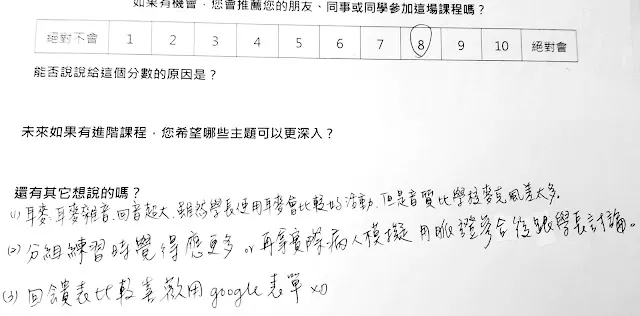 如果有機會，您會推薦您的朋友、同事或同學參加這場課程嗎？
絕對不會 1 2 3 4 5 6 7 8 9 10 絕對會
能否說說給這個分數的原因是？
未來如果有進階課程，您希望哪些主題可以更深入？
還有其它想說的嗎？
(1) 耳麥、耳麥雜音、回音超大，雖然學長使用耳麥會比較好活動，但是音質比學校麥克風差太多。
(2) 分組練習時覺得應更多 or 再拿實際病人模擬 用脈證合後跟學長討論。
(3) 回饋表比較喜歡用 google 表單 xD